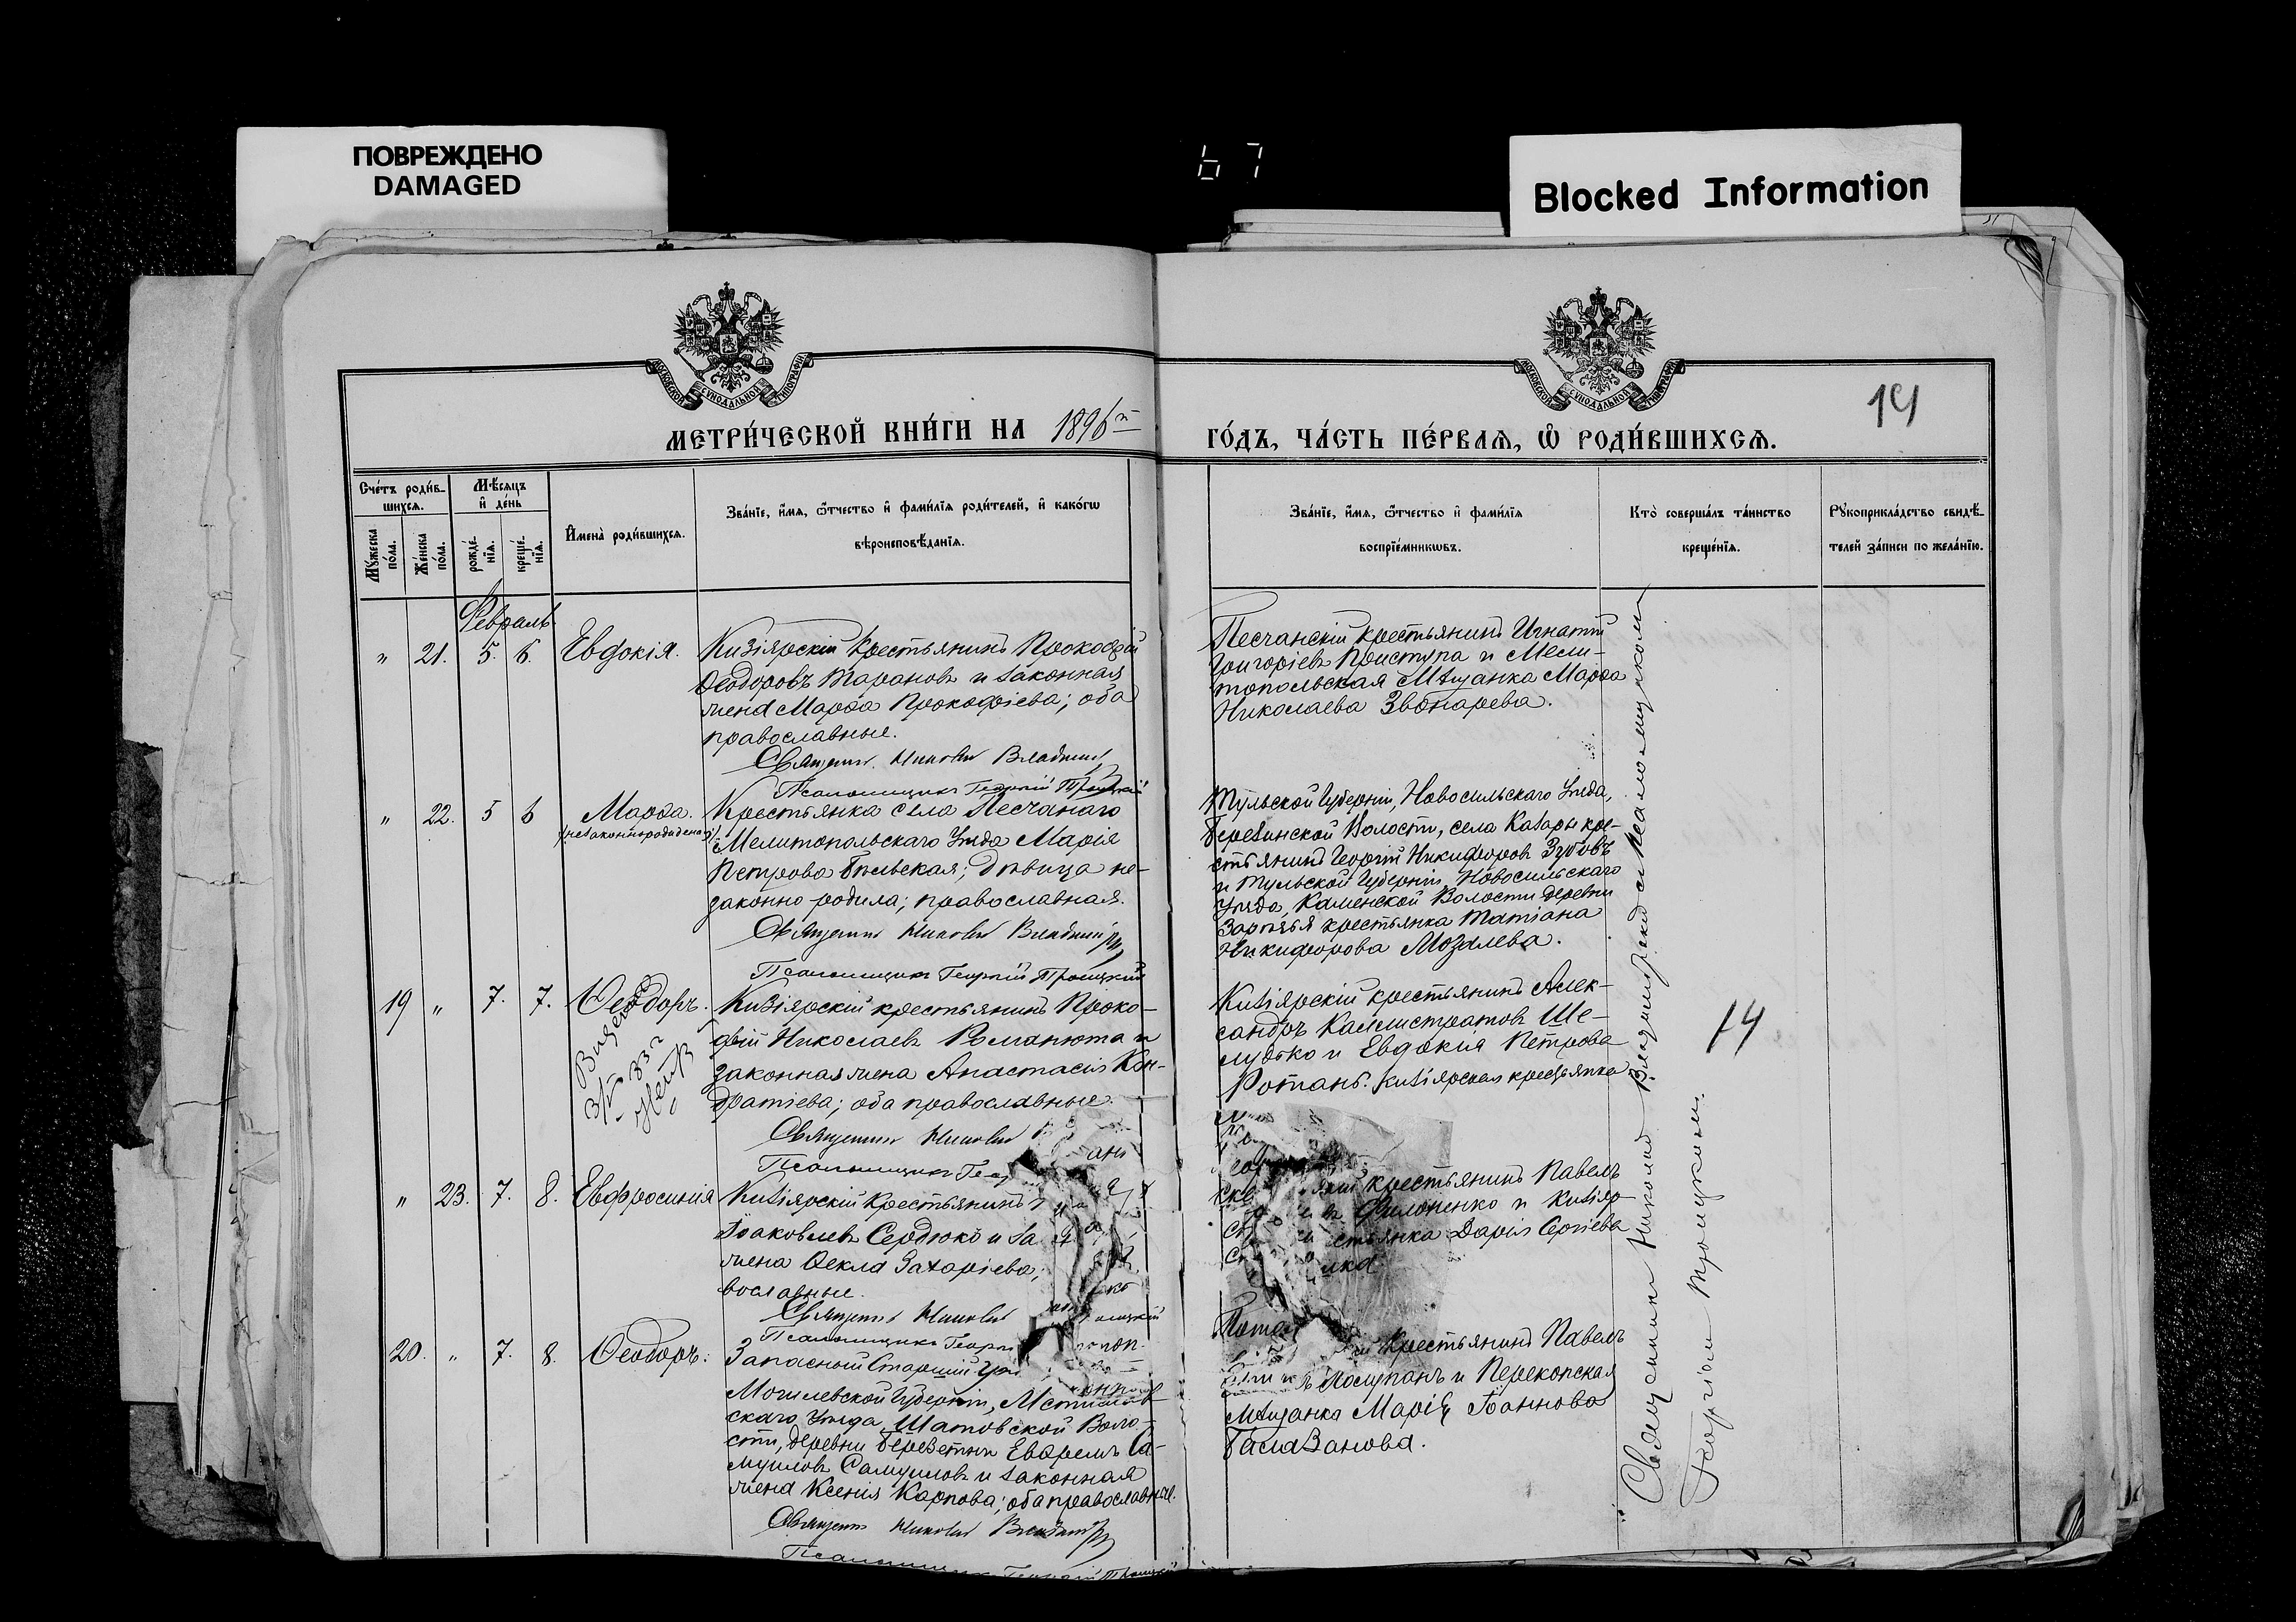 ПОВРЕЖДЕНО
DAMAGED
67
Blocked Information
14
МЕТРИ́ЧЕСКОЙ КНИ́ГИ НА 1896й
ГО́ДЪ, ЧА́СТЬ ПЕ́РВАѦ, Ѡ҆ РОДИ́ВШИХСѦ.
Сче́тъ роди́в-
шихсѧ.
Мѣ́сяцъ
и҆ де́нь
Мꙋ́жеска
по́ла.
Же́нска
по́ла.
рожде́-
нїѧ.
креще́-
нїѧ.
И҆мена̀ роди́вшихсѧ.
Зва́нїе, и҆́мѧ, ѻ҆́тчество и҆ фами́лїѧ роди́телей, и҆ како́гѡ
вѣроисповѣ́данїѧ.
Зва́нїе, и҆́мѧ, ѻ҆́тчество и҆ фами́лїѧ
воспрїе́мникѡвъ.
Кто̀ соверша́лъ та́инство
креще́нїѧ.
Рꙋкоприкла́дство свидѣ́-
телей за́писи по жела́нїю.
Февраль
" 21. 5. 6. Евдокія.
Кизіярскій крестьянинъ Прокофій
Ѳеодоровъ Тарановъ и законная
жена Марѳа Прокофіева; оба
православные.
Священ. Николай Владимір
Псаломщикъ Георгій Троицкій
Песчанскій крестьянинъ Игнатій
Григоріевъ Приступа и Мели-
топольская Мѣщанка Марѳа
Николаева Звонарева.
" 22. 5 6 Марѳа.
(незаконнорожденная)
Крестьянка села Песчанаго
Мелитопольскаго Уѣзда Марія
Петрова Бѣльская; дѣвица не-
законно родила; православная.
Священникъ Николай Владимір
Псаломщикъ Георгій Троицкій
Тульской Губерніи, Новосильскаго Уѣзда,
Березинской Волости, села Казары кре-
стьянинъ Георгій Никифоровъ Зубовъ
и Тульской Губерніи, Новосильскаго
Уѣзда, Каменской Волости деревни
крестьянка Татіана
Никифорова Мозалева.
19 " 7. 7. Ѳеодоръ.
Кизіярскій крестьянинъ Проко-
фій Николаевъ Романюта и
законная жена Анастасія Кон-
дратіева; оба православные.
Священникъ Николай
Псаломщикъ Геор
Кизіярскій крестьянинъ Алек-
сандръ Каллистратовъ Ше-
лудько и Евдокія Петрова
Ротань. кизіярская крестьянка
14
" 23. 7. 8. Евфросинія
Кизіярскій крестьянинъ
Іаковлевъ Сердюкъ и за
жена Ѳекла Захаріева;
вославные.
Священникъ Николай
Псаломщикъ Георг
крестьянинъ Павелъ
Филоненко и Кизіяр
стьянка Дарія Сергіева
20. " 7. 8. Ѳеодоръ.
Запасной Старшій
Могилевской Губерніи, Мстислав-
скаго Уѣзда, Шатовской Воло-
сти, деревни Евфремъ Са-
муиловъ Самуиловъ и законная
жена Ксенія Карпова; оба православные.
Священникъ Николай Владимір
Псаломщикъ Георгій Троицкій
крестьянинъ Павелъ
и Перекопская
Мѣщанка Марія Іоаннова
Священникъ Николай Владимірскій съ Псаломщикомъ
Георгіемъ Троицкимъ.